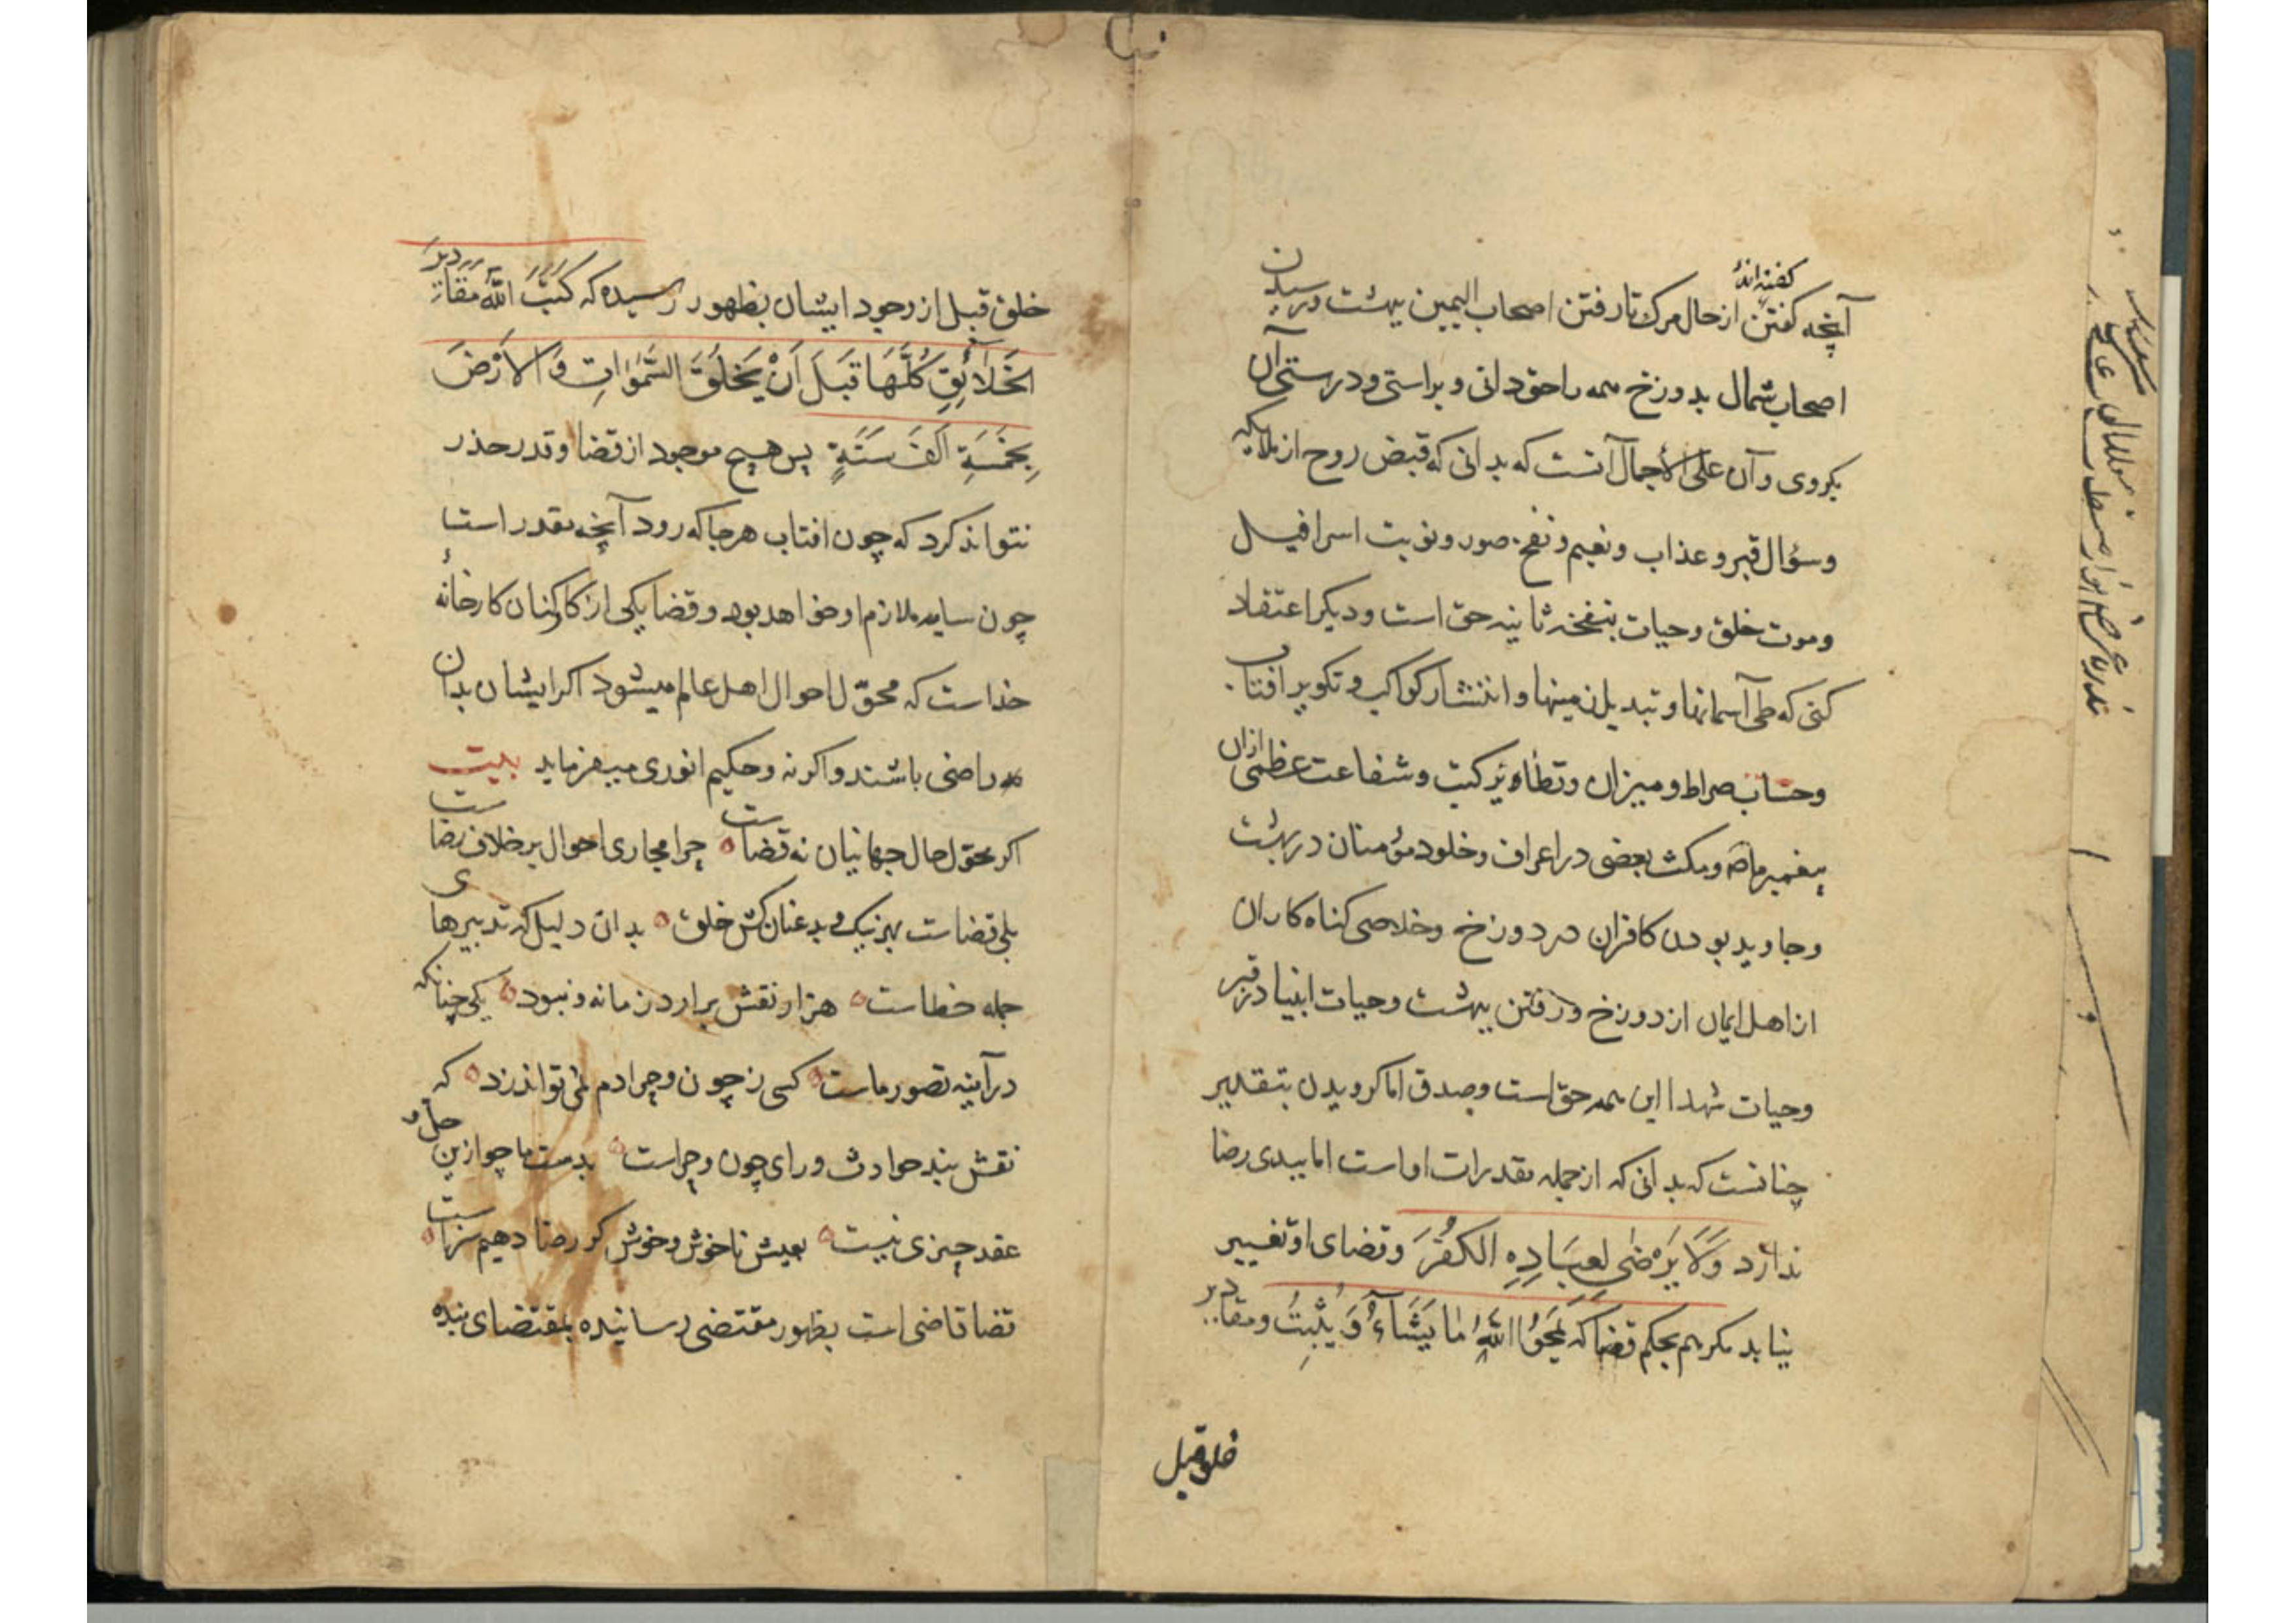 گفته‌اند
آنچه گفتن از حال مرگ تا رفتن اصحاب الیمین ببهشت و رسیدن
اصحاب شمال بدوزخ همه را حق دانی و براستی و درستی آن
بکروی و آن علی الاجمال آنست که بدانی که قبض روح از ملایکه
و سؤال قبر و عذاب و نعیم و نفخ صور و نوبت اسرافیل
و موت خلق و حیات بنفخه ثانیه حق است و دیکر اعتقاد
کنی که طی آسمانها و تبدیل زمینها و انتشار کواکب و تکویر افتاب
و حساب صراط و میزان و تطایر کتب و شفاعت عظمی ازان
پیغمبر ما و مکث بعضی در اعراف و خلود مؤمنان در بهشت
و جاوید بودن کافران در دوزخ و خلاصی کناه کاران
از اهل ایمان از دوزخ و رفتن ببهشت و حیات انبیا در قبر
و حیات شهدا این همه حق است و صدق اما کرویدن بتقدیر
چنانست که بدانی که از جمله مقدرات او است اما ببدی رضا
ندارد وَلَا يَرْضٰى لِعِبَادِهِ الكُفْرَ و قضای او تغییر
نیابد مکر هم بحکم قضا که يَمْحُوا اللّٰهُ مَا يَشَآءُ وَيُثْبِتُ و مقادیر
خلق قبل
خلق قبل از وجود ایشان بظهور رسیده که كَتَبَ اللّٰهُ مَقَادِيرَ
الخَلَائِقِ كُلَّهَا قَبَلَ اَنْ يَخْلُقَ السَّمٰوَاتِ وَالاَرْضَ
بِخَمْسَةِ اَلْفَ سَنَةٍ پس هیچ موجود از قضا و قدر حذر
نتواند کرد که چون افتاب هر جا که رود آنچه مقدر است
چون سایه ملازم او خواهد بود و قضا یکی از کارکنان کارخانهٔ
خداست که محوّل احوال اهل عالم میشود اکر ایشان بدان
راضی باشند و اکر نه و حکیم انوری میفرماید بیت
اکر محوّل حال جهانیان نه قضاست چرا مجاری احوال بر خلاف رضاست
بلی قضاست بهر نیک و بد عنان کش خلق بدان دلیل که تدبیرهای
جمله خطاست هزار نقش برارد زمانه و نبود یکی چنانکه
در آینه تصور ماست کسی ز چون و چرا دم نمی تواند زد که
نقش بند حوادث ورای چون و چراست بدست ما چو ازین حل و
عقد چیزی نیست بعیش ناخوش و خوش کر رضا دهیم سزاست
قضا قاضی است بظهور مقتضی رسانیده بمقتضای بنده